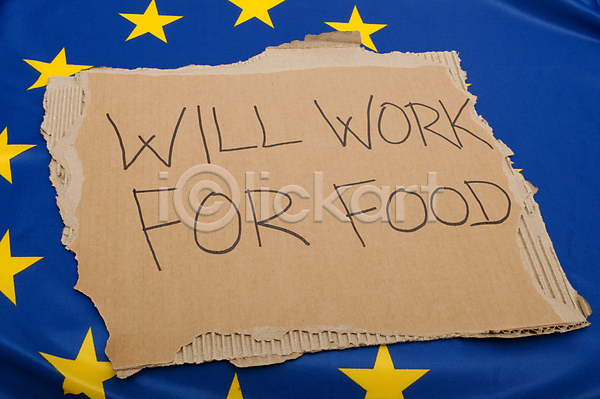 WILL WORK
FOR FOOD
iclickart